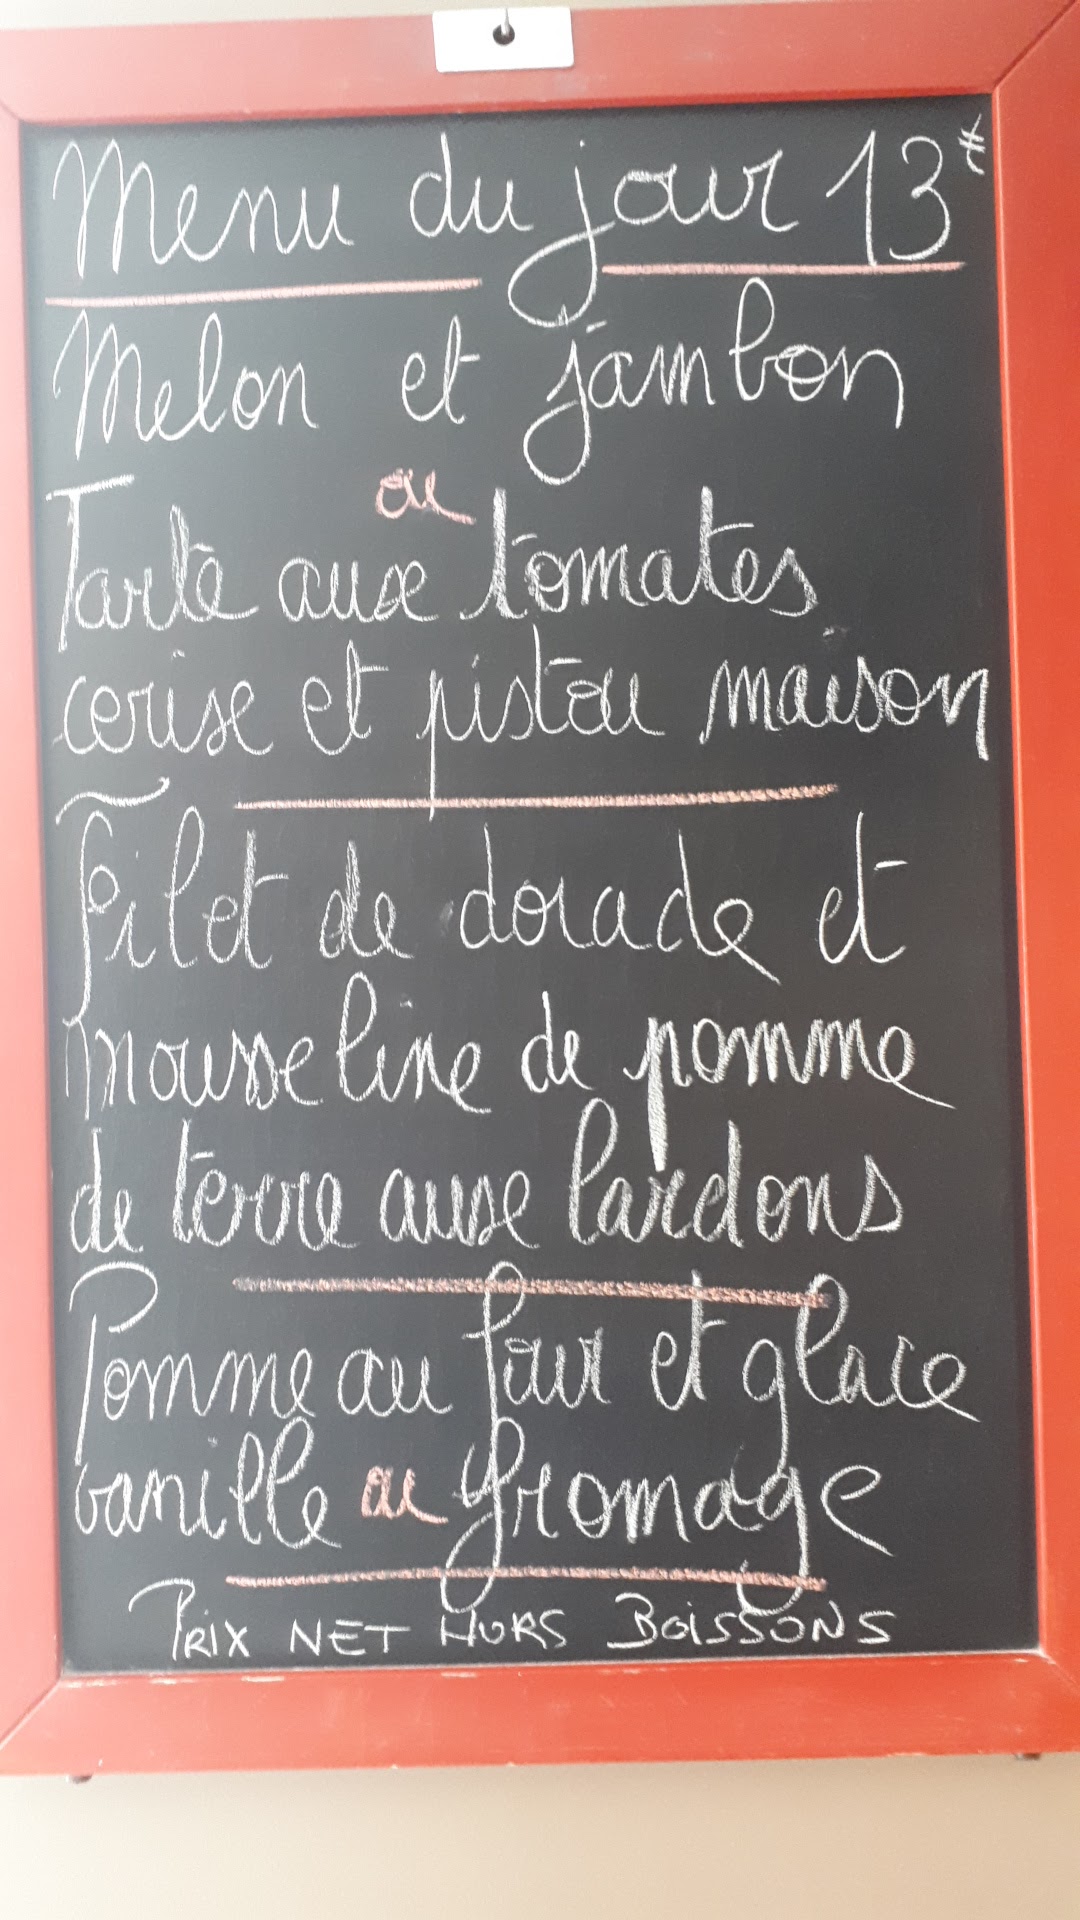 Menu du jour 13€
Melon et jambon
ou
Tarte aux tomates
cerise et pistou maison
Filet de dorade et
mousseline de pomme
de terre aux lardons
Pomme au four et glace
vanille ou fromage
PRIX NET HORS BOISSONS